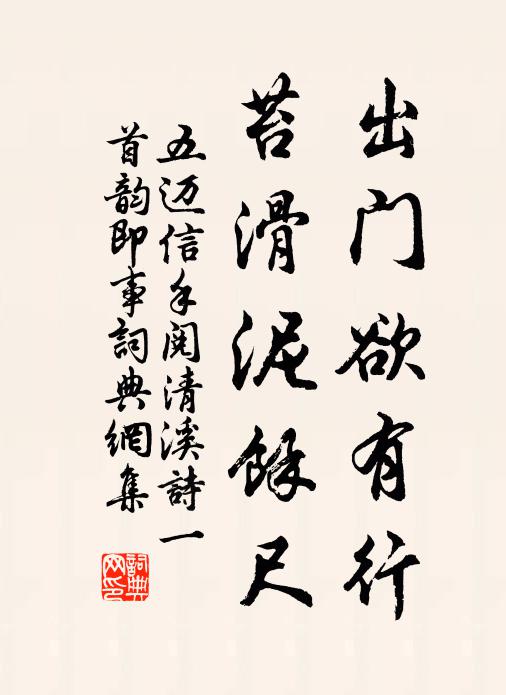 出门欲有行
苔滑泥馀尺
五迈信手阅清溪詩一
首韵即事詞典網集
詞典
网印